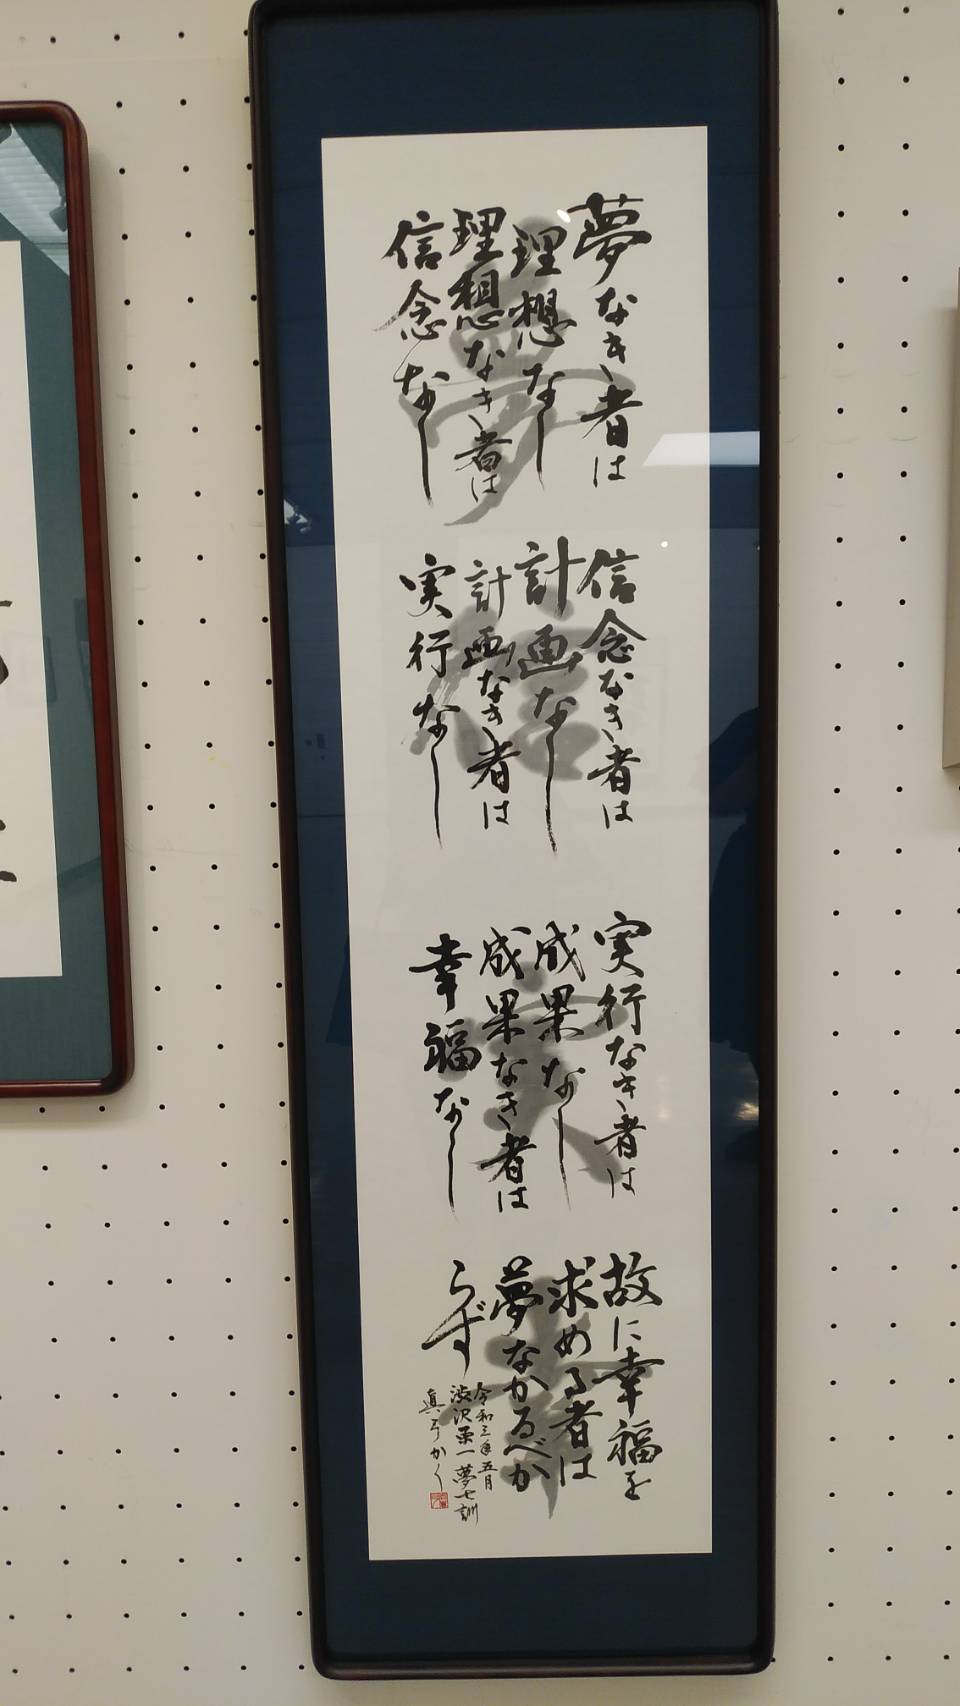 夢なき者は
理想なし
理想なき者は
信念なし
信念なき者は
計画なし
計画なき者は
実行なし
実行なき者は
成果なし
成果なき者は
幸福なし
故に幸福を
求める者は
夢なかるべか
らず
令和三年五月
渋沢栄一夢七訓
かく